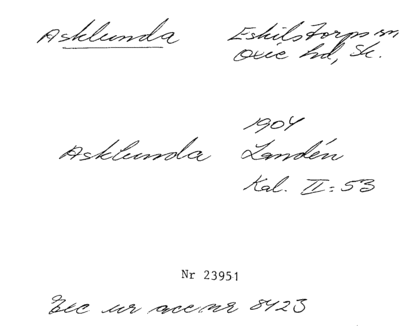 Asklunda Eskilstorps sn
Oxie hd, Sk.
1904
Asklunda Landén
Kal. II: 53
Nr 23951
Exc ur acc nr 8423